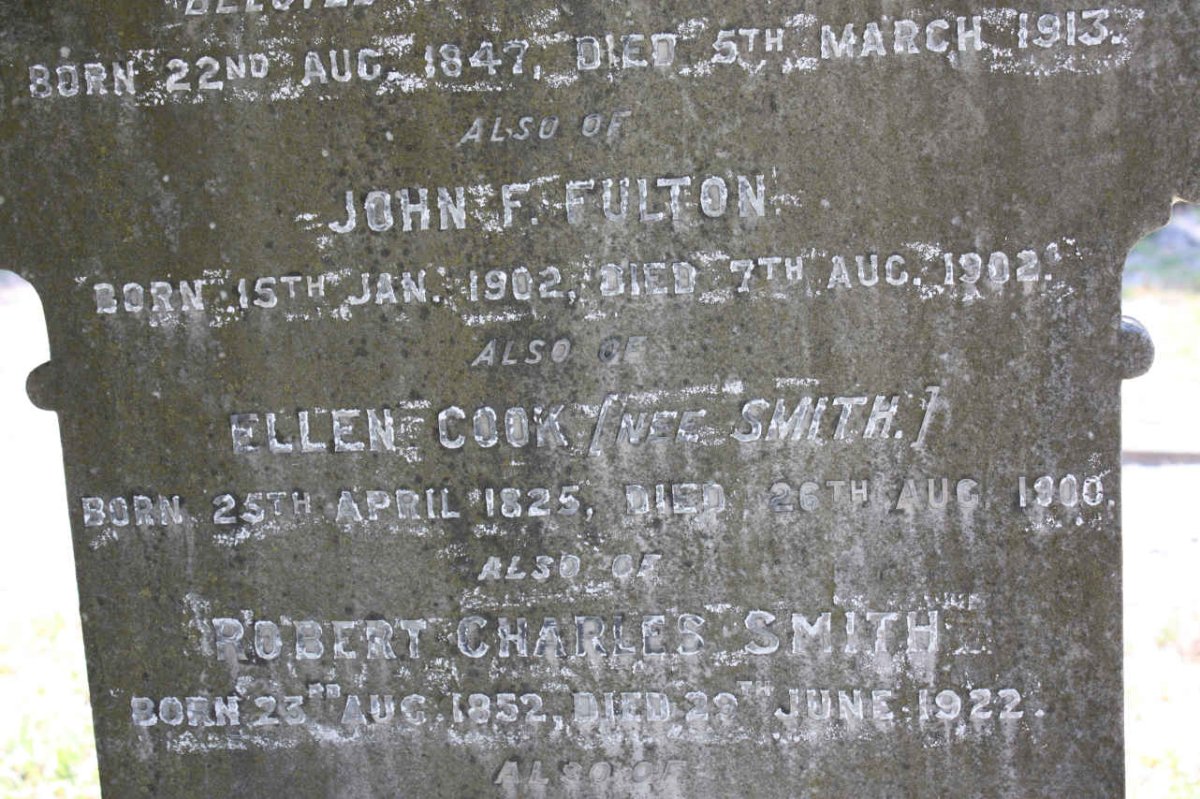 BELOVED
BORN 22ND AUG. 1847, DIED 5TH MARCH 1913.
ALSO OF
JOHN F. FULTON
BORN 15TH JAN. 1902, DIED 7TH AUG. 1902.
ALSO OF
ELLEN COOK [NEE SMITH.]
BORN 25TH APRIL 1825, DIED 26TH AUG 1900.
ALSO OF
ROBERT CHARLES SMITH
BORN 23RD AUG. 1852, DIED 29TH JUNE 1922.
ALSO OF